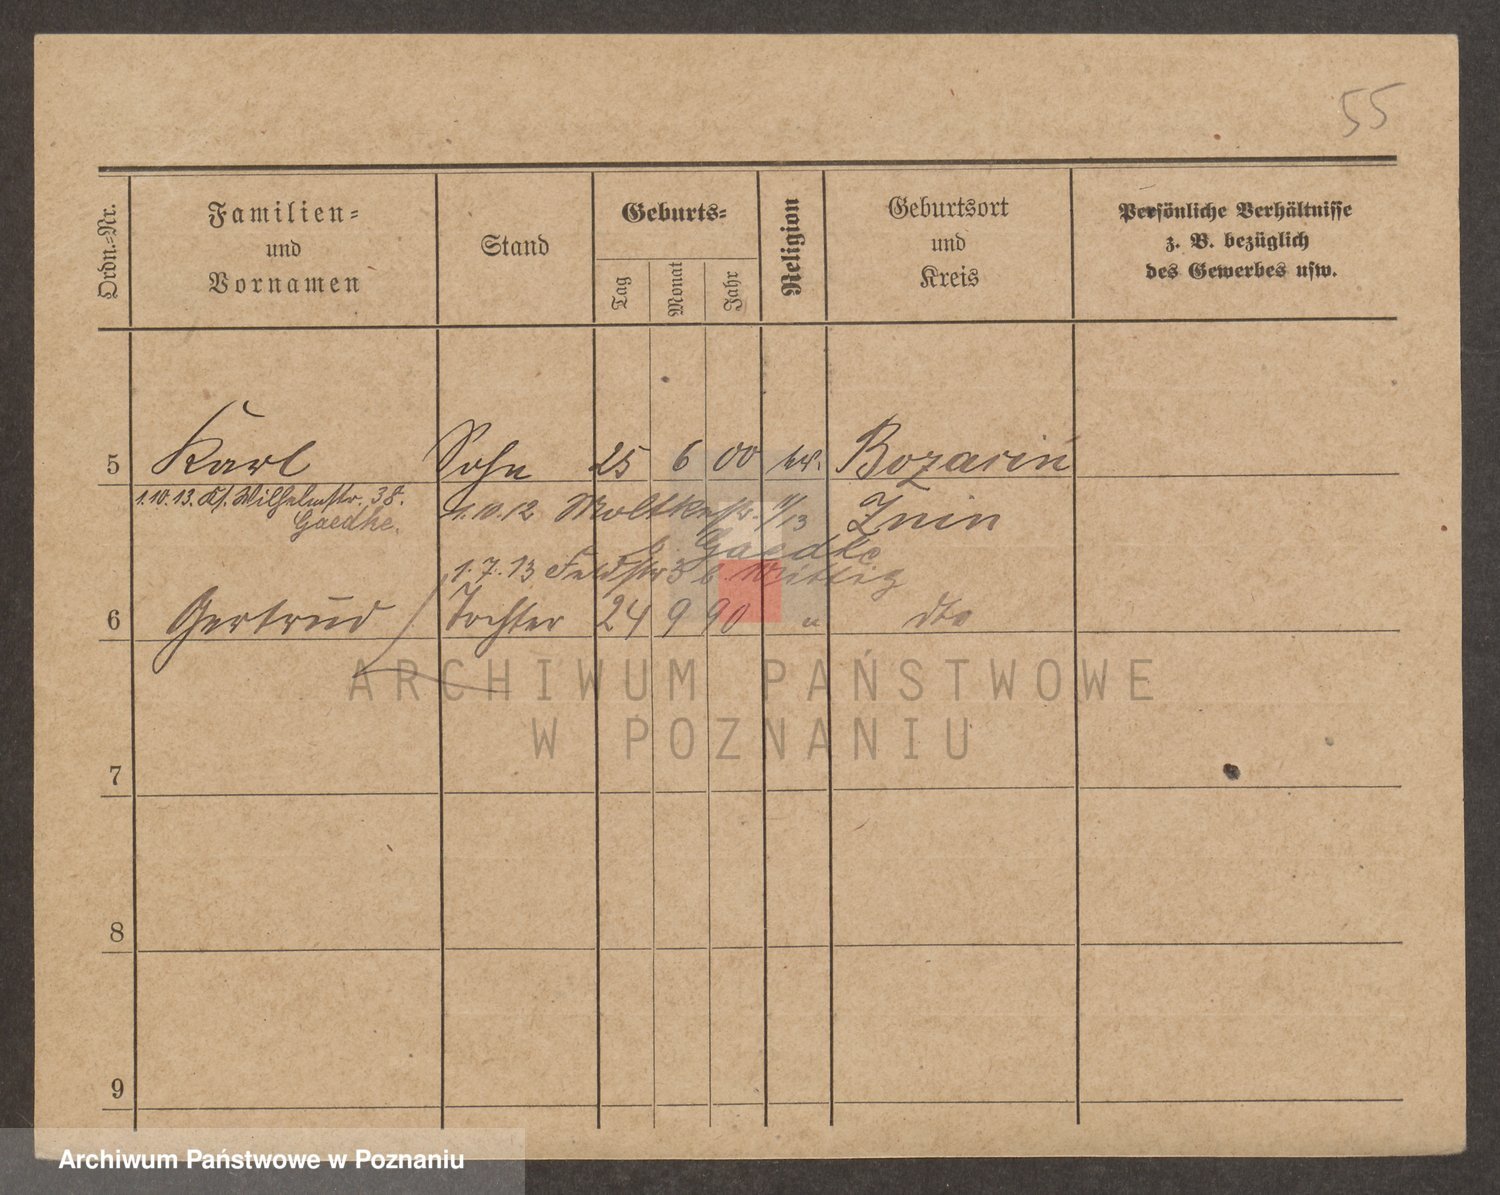 55
Ordn.-Nr.
Familien-
und
Vornamen
Stand
Geburts-
Tag
Monat
Jahr
Religion
Geburtsort
und
Kreis
Persönliche Verhältnisse
z. B. bezüglich
des Gewerbes usw.
5 Karl Sohn 25 6 00 ev.
1.10.13. Kl. Wilhelmstr. 38.
Gaedke.
1.10.12 Moltkestr. 11/13 Znin
b. Gaedke
1.7.13 Feldstr 3 b. Wittig
6 Gertrud Tochter 24 9 90 " dto
7
8
9
ARCHIWUM PAŃSTWOWE
W POZNANIU
Archiwum Państwowe w Poznaniu